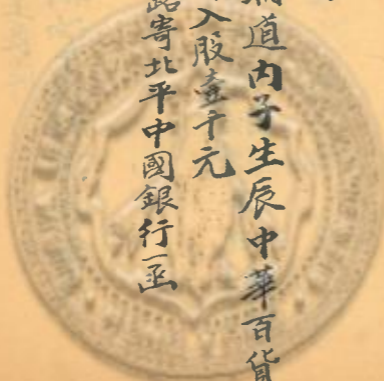 道內子生辰中華百貨
入股壹千元
寄北平中國銀行一函